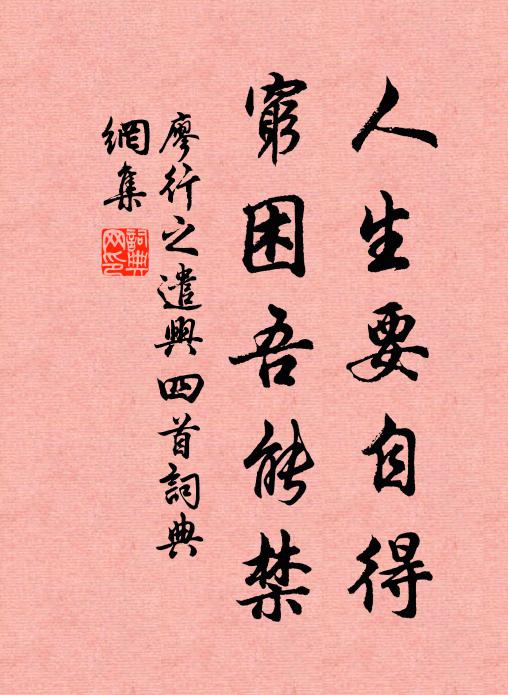 人生要自得
窮困吾能禁
廖行之遣興四首詞典
網集
詞典
网印